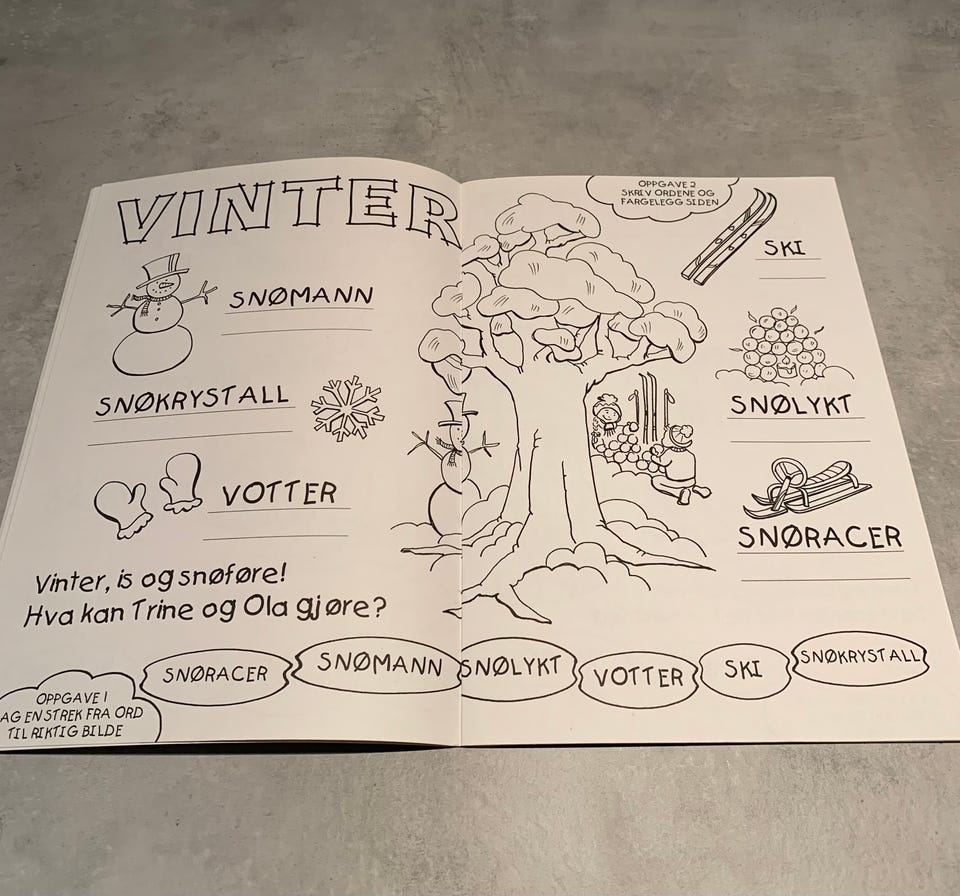 VINTER
SNØMANN
SNØKRYSTALL
VOTTER
Vinter, is og snøføre!
Hva kan Trine og Ola gjøre?
OPPGAVE 1
AG EN STREK FRA ORD
TIL RIKTIG BILDE
OPPGAVE 2
SKRIV ORDENE OG
FARGELEGG SIDEN
SKI
SNØLYKT
SNØRACER
SNØRACER SNØMANN SNØLYKT VOTTER SKI SNØKRYSTALL